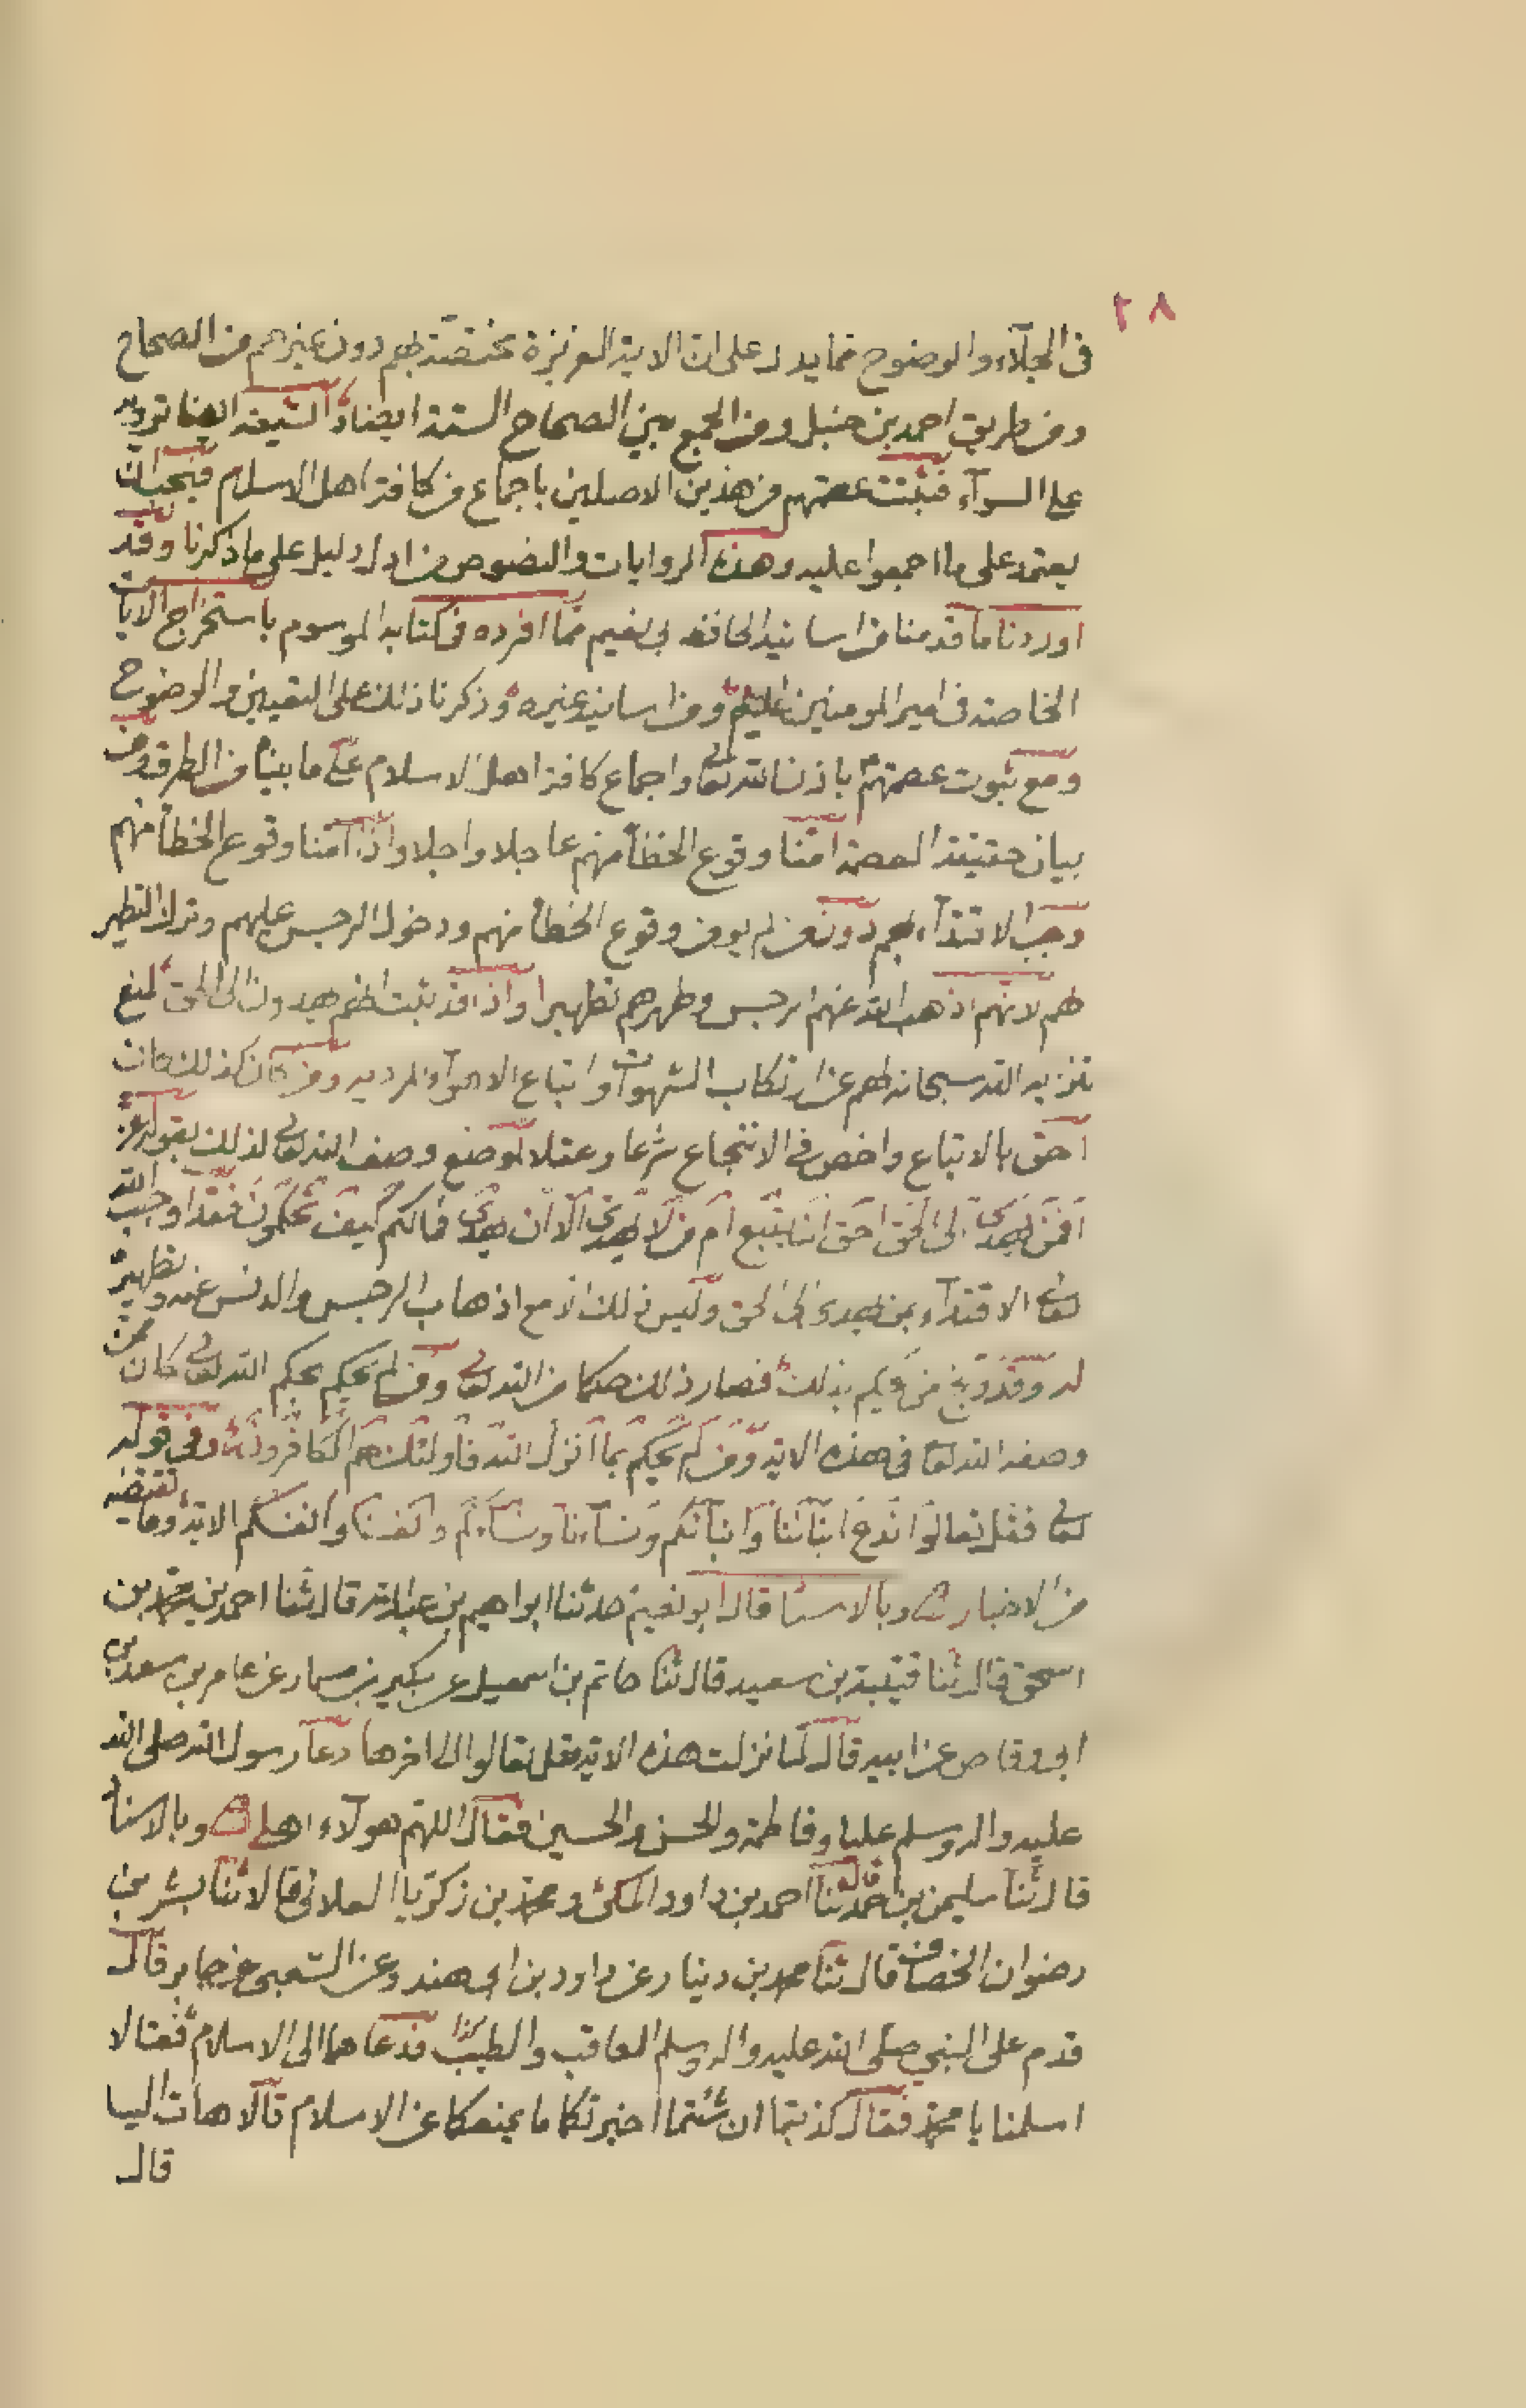 ٢٨
فى الجلآء والوضوح مما يدل على ان الاية العزيزة مختصة بهم دون غيرهم من الصحاح
ومن طريق احمد بن حنبل ومن الجمع بين الصحاح الستة ايضا والشيعة ايضا ترويه
على السوآء فثبتت عصمتهم من هذين الاصلين باجماع من كافة اهل الاسلام فيجب ان
يعتمد على ما اجمعوا عليه وهذه الروايات والنصوص من ادل دليل على ما ذكرنا وقد
اوردنا ما قدمنا من اسانيد الحافظ ابى نعيم مما افرده فى كتابه الموسوم باستخراج الايات
الخاصة فى امير المومنين عليه السلم ومن اسانيد غيره وذكرنا ذلك على التعيين والوضوح
ومع ثبوت عصمتهم باذن الله تعالى واجماع كافة اهل الاسلام على ما بيناه من الطرق ومن
بيان حقيقة العصمة امنا وقوع الخطأ منهم عاجلا واجلا واذا امنا وقوع الخطأ منهم
وجب الاقتدآء بهم دون من لم يومن وقوع الخطأ منهم ودخول الرجس عليهم وترك التطهير
لهم لانهم اذهب الله عنهم الرجس وطهرهم تطهيرا واذا قد ثبت انهم يهدون الى الحق لموضع
تنزيه الله سبحانه لهم عن ارتكاب الشهوات واتباع الاهوآء المردية ومن كان كذلك كان
احق بالاتباع واخص فى الانتجاع شرعا وعقلا لموضع وصف الله تعالى لذلك بقوله عز
افمن يهدى الى الحق احق ان يتبع ام من لا يهدى الا ان يهدى فما لكم كيف تحكمون فقد اوجب الله
تعالى الاقتدآء بمن يهدى الى الحق وليس ذلك الا مع اذهاب الرجس والدنس عنه وتطهيره
له وقد وبخ من لم يحكم بذلك فصار ذلك حكما من الله تعالى ومن لم يحكم بحكم الله تعالى كان ممن
وصفه الله تعالى فى هذه الاية ومن لم يحكم بما انزل الله فاولئك هم الكافرون ومن قوله
تعالى فقل تعالوا ندع ابنآئنا وابنآئكم ونسآءنا ونسآءكم وانفسنا وانفسكم الاية وما تقتضيه
من الاخبار وبالاسناد قال ابو نعيم حدثنا ابراهيم بن عبد الله قال ثنا احمد بن محمد بن
اسحق قال ثنا قتيبة بن سعيد قال ثنا حاتم بن اسمعيل عن بكير بن مسمار عن عامر بن سعد بن
ابى وقاص عن ابيه قال لما نزلت هذه الاية فقل تعالوا الى اخرها دعا رسول الله صلى الله
عليه واله وسلم عليا وفاطمة والحسن والحسين فقال اللهم هولآء اهلى وبالاسناد
قال ثنا سليمن بن احمد قال ثنا احمد بن داود المكى ومحمد بن زكريا العلانى قالا ثنا بشر بن
رضوان الخصاف قال ثنا محمد بن دينار عن داود بن ابى هند وعن الشعبى عن جابر قال
قدم على النبي صلى الله عليه واله وسلم العاقب والطيب كذا فدعاهما الى الاسلام فقالا
اسلمنا يا محمد فقال كذبتما ان شئتما اخبرتكما ما يمنعكما عن الاسلام قالا هات الينا
قال